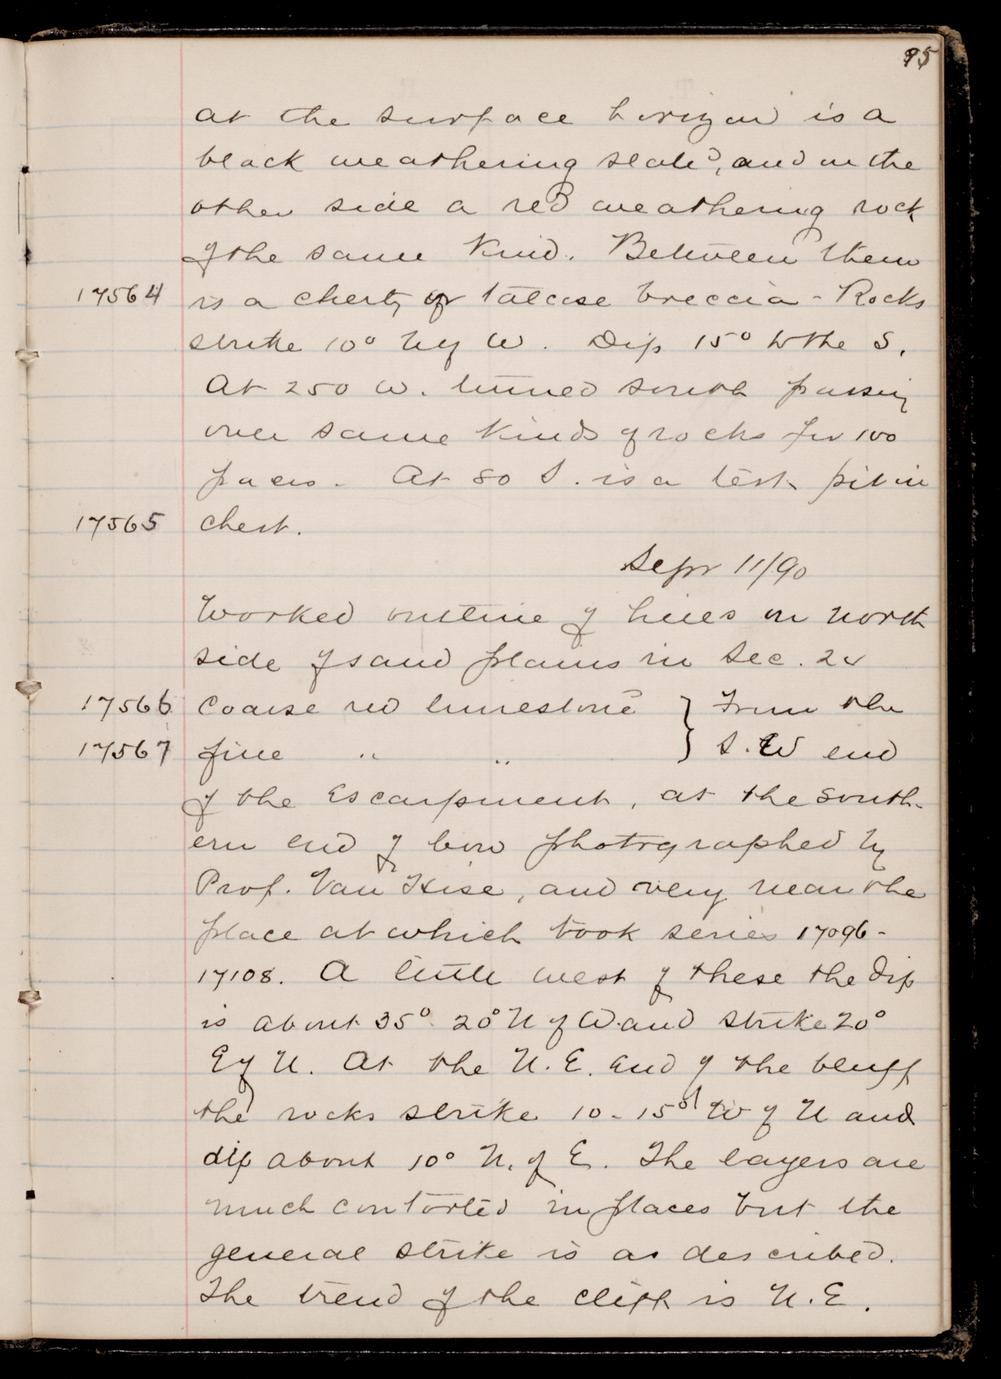 95
at the surface horizon is a
black weathering slate, and on the
other side a red weathering rock
of the same kind. Between them
17564 is a cherty or talcose breccia - Rocks
strike 10° N of W. Dip 15° to the S.
At 250 W. turned south passing
over same kinds of rocks for 100
paces. At 80 S. is a test pit in
17565 chert.
Sepr 11/90
Worked outline of hills on north
side of sand plains in Sec. 24
17566 Coarse red limestone } From the
17567 fine " " } S.W end
of the Escarpment, at the south-
ern end of bow photographed by
Prof. Van Hise, and very near the
place at which took series 17096-
17108. A little west of these the dip
is about 35° 20° N of W and strike 20°
E of N. At the N.E. end of the bluff
the rocks strike 10-15° W of N and
dip about 10° N. of E. The layers are
much contorted in places but the
general strike is as described.
The trend of the cliff is N.E.